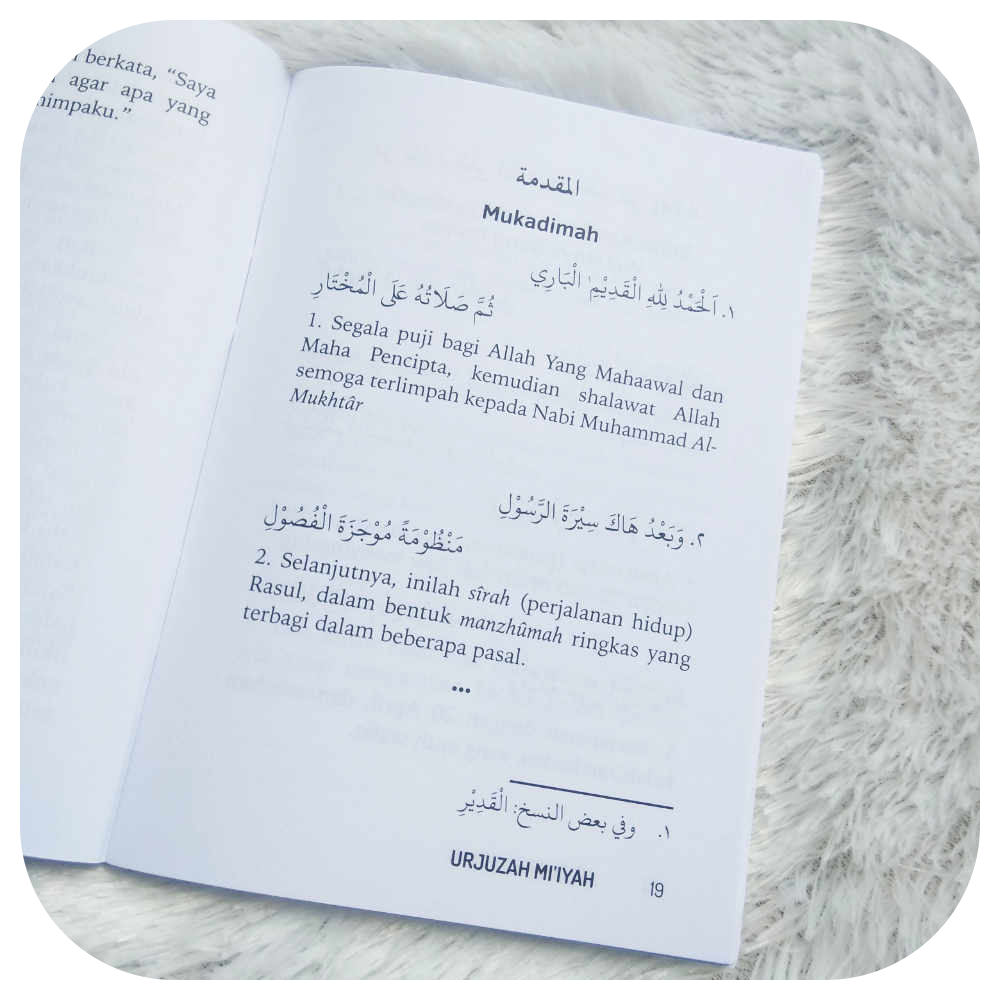 berkata, “Saya
agar apa yang
impaku.”
المقدمة
Mukadimah
١. اَلْحَمْدُ لِلهِ الْقَدِيْمِ ١ الْبَارِي
ثُمَّ صَلَاتُهُ عَلَى الْمُخْتَارِ
1. Segala puji bagi Allah Yang Mahaawal dan
Maha Pencipta, kemudian shalawat Allah
semoga terlimpah kepada Nabi Muhammad Al-
Mukhtâr
٢. وَبَعْدُ هَاكَ سِيْرَةَ الرَّسُوْلِ
مَنْظُوْمَةً مُوْجَزَةَ الْفُصُوْلِ
2. Selanjutnya, inilah sîrah (perjalanan hidup)
Rasul, dalam bentuk manzhûmah ringkas yang
terbagi dalam beberapa pasal.
•••
١. وفي بعض النسخ: الْقَدِيْرِ
URJUZAH MI'IYAH 19